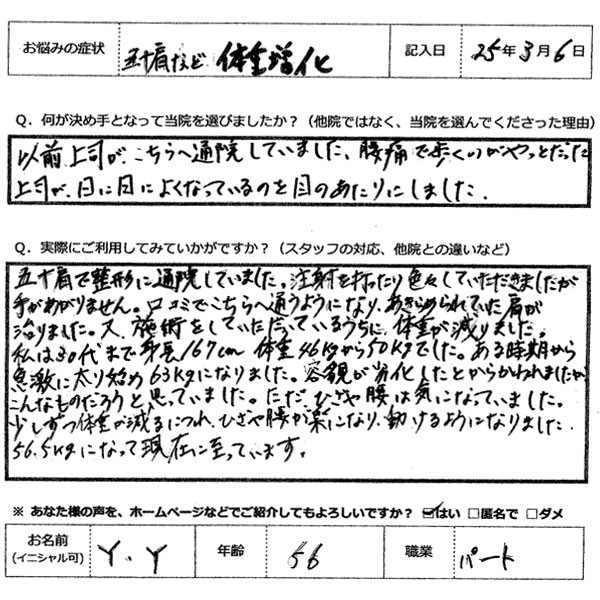 お悩みの症状 五十肩など 体重増化 記入日 25年3月6日
Q．何が決め手となって当院を選びましたか？（他院ではなく、当院を選んでくださった理由）
以前上司が、こちらへ通院していました、腰痛で歩くのがやっとだった
上司が、日に日によくなっているのを目のあたりにしました。
Q．実際にご利用してみていかがですか？（スタッフの対応、他院との違いなど）
五十肩で整形に通院していました。注射を打ったり色々していただきましたが
手があがりません。口コミでこちらへ通うようになり、あきらめられていた肩が
治りました。又、施術をしていただいているうちに、体重が減りました。
私は30代まで身長167cm 体重46kgから50kgでした。ある時期から
急激に太り始め63kgになりました。容貌が劣化したとからかわれましたが
こんなものだろうと思っていました。ただ、ひざや腰は気になっていました。
少しずつ体重が減るにつれ、ひざや腰が楽になり、動けるようになりました。
56.5kgになって現在に至っています。
※ あなた様の声を、ホームページなどでご紹介してもよろしいですか？ ☑はい □匿名で □ダメ
お名前 (イニシャル可) Y．Y 年齢 56 職業 パート